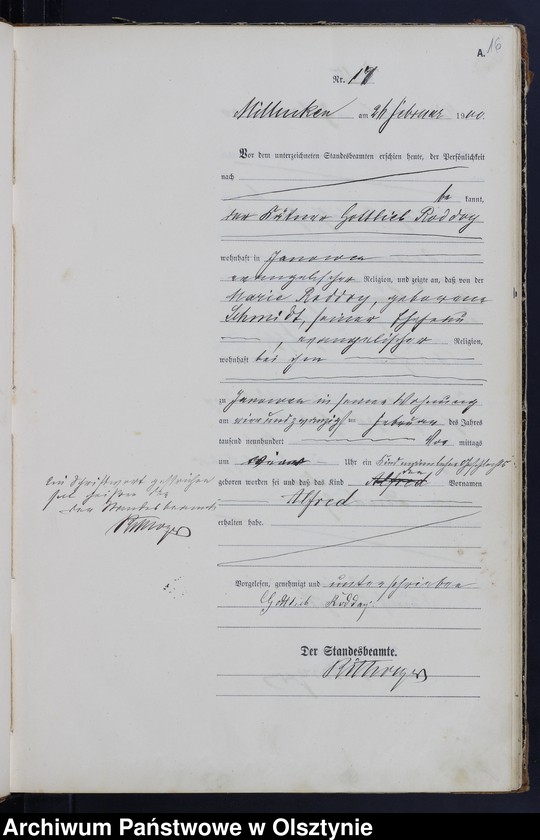 16
A.
Nr. 17
am 26 Februar 1900.
Vor dem unterzeichneten Standesbeamten erschien heute, der Persönlichkeit
nach
be kannt,
der Kätner Gottlieb Rodday
wohnhaft in Janowen
evangelischer Religion, und zeigte an, daß von der
Marie Rodday, geborene
Schmidt, seiner Ehefrau
, evangelischer Religion,
wohnhaft bei ihm
zu Janowen in seiner Wohnung
am vierundzwanzigsten Februar des Jahres
tausend neunhundert Vor mittags
um Uhr ein Kind männlichen Geschlechts
geboren worden sei und daß das Kind Alfred den Vornamen
Alfred
erhalten habe.
ein Schriftwort gestrichen
soll heißen den
der Standesbeamte
Vorgelesen, genehmigt und unterschrieben
Gottlieb Rodday.
Der Standesbeamte.
Archiwum Państwowe w Olsztynie